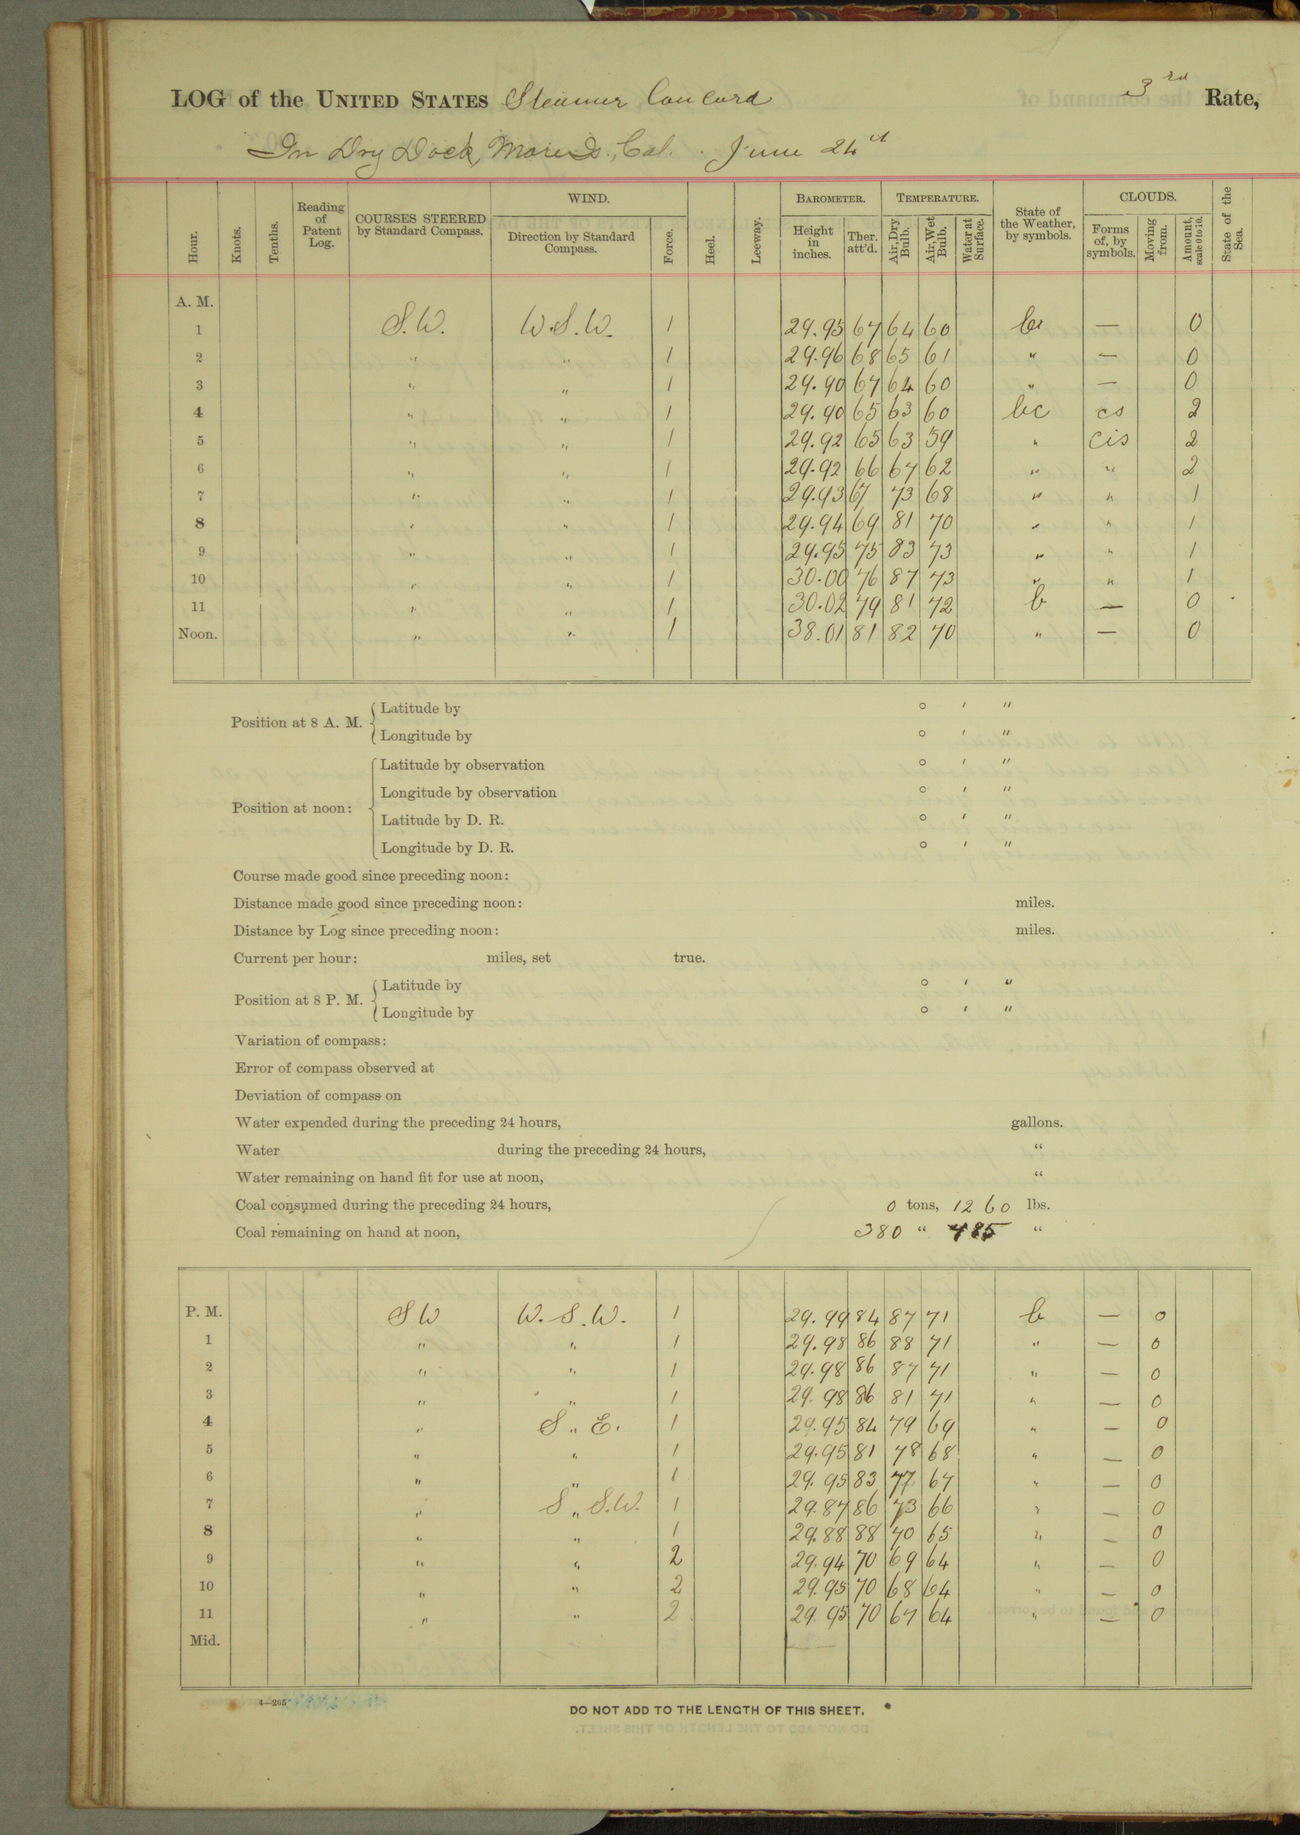 LOG of the UNITED STATES Steamer Concord 3rd Rate,
In Dry Dock, Mare Id., Cal. June 24th
Hour. Knots. Tenths. Reading of Patent Log. COURSES STEERED by Standard Compass. WIND. Direction by Standard Compass. Force. Heel. Leeway. BAROMETER. Height in inches. Ther. att'd. TEMPERATURE. Air, Dry Bulb. Air, Wet Bulb. Water at Surface. State of the Weather, by symbols. CLOUDS. Forms of, by symbols. Moving from. Amount, scale 0 to 10. State of the Sea.
A. M.
1 S.W. W.S.W. 1 29.95 67 64 60 — 0
2 " " 1 29.96 68 65 61 " — 0
3 " " 1 29.90 67 64 60 " — 0
4 " " 1 29.90 65 63 60 bc cs 2
5 " " 1 29.92 65 63 59 " cis 2
6 " " 1 29.92 66 67 62 " " 2
7 " " 1 29.93 67 73 68 " " 1
8 " " 1 29.94 69 81 70 " " 1
9 " " 1 29.95 75 83 73 " " 1
10 " " 1 30.00 76 87 73 " " 1
11 " " 1 30.02 79 81 72 b — 0
Noon. " " 1 38.01 81 82 70 " — 0
Position at 8 A. M. Latitude by ° ' "
Longitude by ° ' "
Position at noon: Latitude by observation ° ' "
Longitude by observation ° ' "
Latitude by D. R. ° ' "
Longitude by D. R. ° ' "
Course made good since preceding noon:
Distance made good since preceding noon: miles.
Distance by Log since preceding noon: miles.
Current per hour: miles, set true.
Position at 8 P. M. Latitude by ° ' "
Longitude by ° ' "
Variation of compass:
Error of compass observed at
Deviation of compass on
Water expended during the preceding 24 hours, gallons.
Water during the preceding 24 hours, "
Water remaining on hand fit for use at noon, "
Coal consumed during the preceding 24 hours, 0 tons, 1260 lbs.
Coal remaining on hand at noon, 380 " 485 "
P. M. SW W.S.W. 1 29.99 84 87 71 b — 0
1 " " 1 29.98 86 88 71 " — 0
2 " " 1 29.98 86 87 71 " — 0
3 " " 1 29.98 86 81 71 " — 0
4 " S. E. 1 29.95 84 79 69 " — 0
5 " " 1 29.95 81 78 68 " — 0
6 " " 1 29.95 83 77 67 " — 0
7 " S. S.W. 1 29.87 86 73 66 " — 0
8 " " 1 29.88 88 70 65 " — 0
9 " " 2 29.94 70 69 64 " — 0
10 " " 2 29.95 70 68 64 " — 0
11 " " 2 29.95 70 67 64 " — 0
Mid.
4—265
DO NOT ADD TO THE LENGTH OF THIS SHEET.